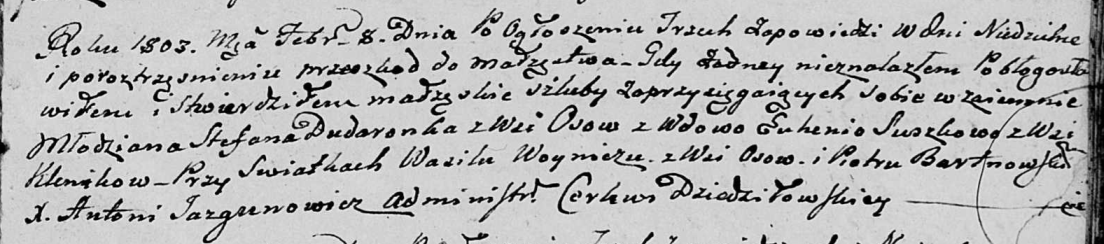 Roku 1803. Mca Febr. 8. Dnia Po Ogłoszeniu Trzech Zapowiedzi w dni Niedzielne
i poroztrząsnieniu przeszkod do małżęstwa - Gdy żadney nieznalazłem Pobłogosła
wiłem i Stwierdziłem małżęskie szluby zaprzysięgaiących sobie wzaiemnie
Młodziana Stefana Dudaronka z Wsi Osow z Wdowo Euhenio Suszkowo z Wsi
Klenikow - Przy Swiadkach Wasilu Woyniczu. z Wsi Osow. i Piotru
X. Antoni Jazgunowicz Administr. Cerkwi Dziedziłowskiey